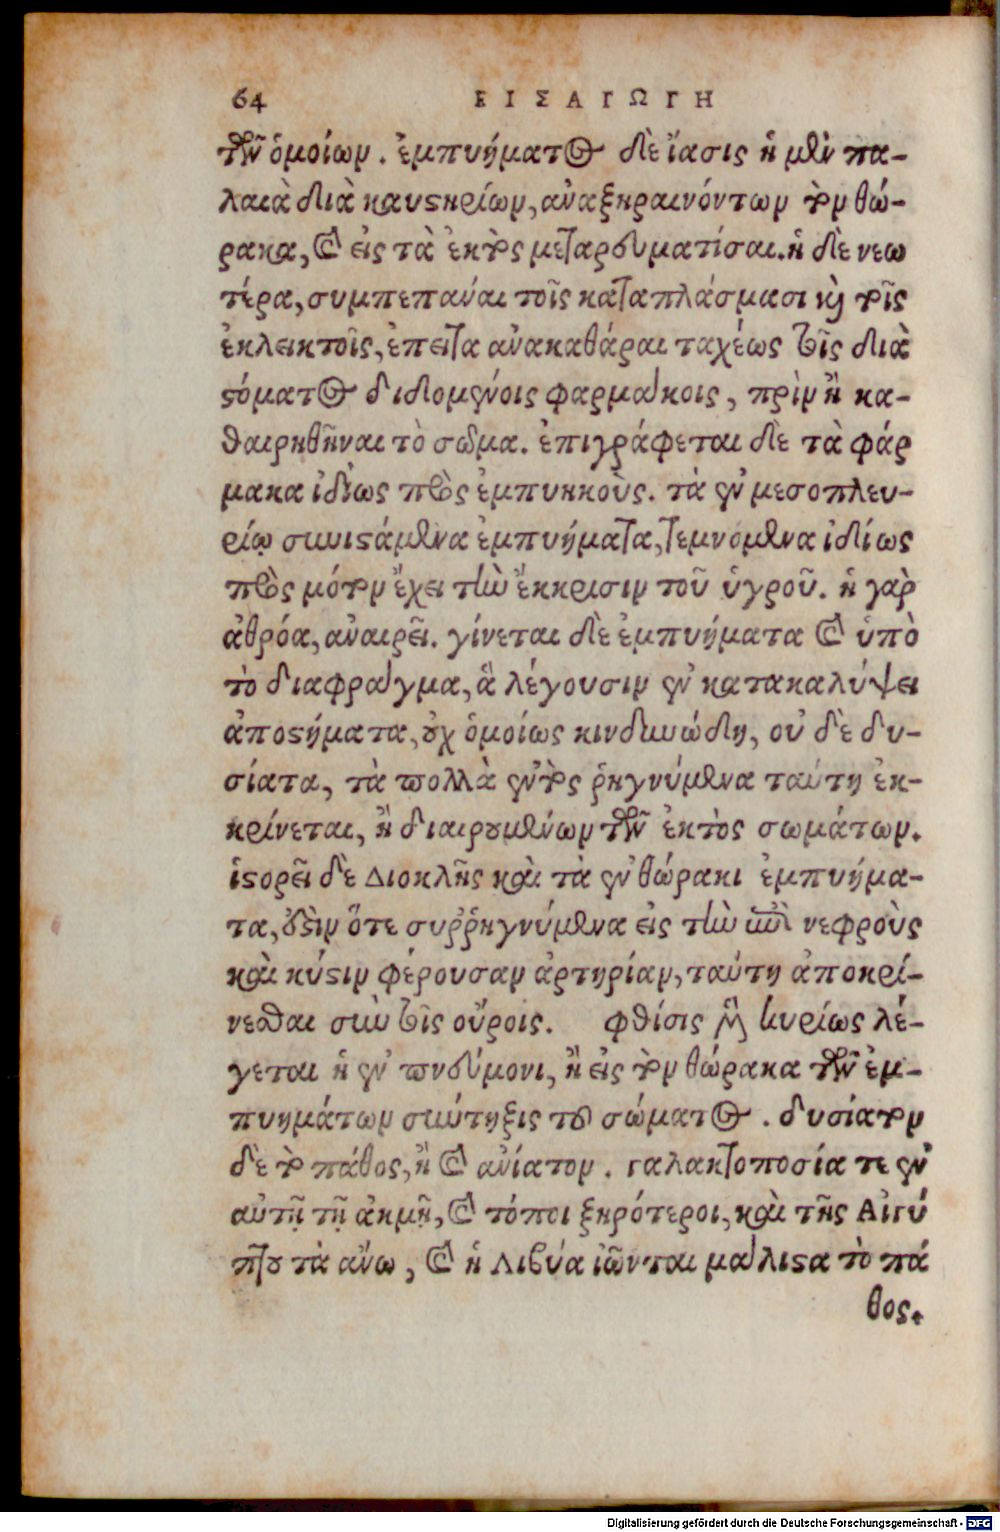 64 ΕΙΣΑΓΩΓΗ
τῶν ὁμοίων. ἐμπυήματος δὲ ἴασις ἡ μὲν πα-
λαιὰ διὰ καυστηρίων, ἀναξηραινόντων τὸν θώ-
ρακα, καὶ εἰς τὰ ἐκτὸς μεταρευματίσαι. ἡ δὲ νεω
τέρα, συμπεπᾶναι τοῖς καταπλάσμασι καὶ τοῖς
ἐκλεικτοῖς, ἔπειτα ἀνακαθάραι ταχέως τοῖς διὰ
στόματος διδομένοις φαρμάκοις, πρὶν ἢ κα-
θαιρηθῆναι τὸ σῶμα. ἐπιγράφεται δὲ τὰ φάρ
μακα ἰδίως πρὸς ἐμπυηκούς. τὰ ἐν μεσοπλευ-
ρίῳ συνιστάμενα ἐμπυήματα, τεμνόμενα ἰδίως
πρὸς μότον ἔχει τὴν ἔκκρισιν τοῦ ὑγροῦ. ἡ γὰρ
ἀθρόα, ἀναιρεῖ. γίνεται δὲ ἐμπυήματα καὶ ὑπὸ
τὸ διαφράγμα, ἃ λέγουσιν ἐν κατακαλύψει
ἀποστήματα, οὐχ ὁμοίως κινδυνώδη, οὐ δὲ δυ-
σίατα, τὰ πολλὰ ἐντὸς ῥηγνύμενα ταύτῃ ἐκ-
κρίνεται, ἢ διαιρουμένων τῶν ἐκτὸς σωμάτων.
ἱστορεῖ δὲ Διοκλῆς καὶ τὰ ἐν θώρακι ἐμπυήμα-
τα, ἔστιν ὅτε συῤῥηγνύμενα εἰς τὴν ἐπὶ νεφροὺς
καὶ κύστιν φέρουσαν ἀρτηρίαν, ταύτῃ ἀποκρί-
νεσθαι σὺν τοῖς οὔροις. φθίσις δὲ κυρίως λέ-
γεται ἡ ἐν πνεύμονι, ἢ εἰς τὸν θώρακα τῶν ἐμ-
πυημάτων σύντηξις τοῦ σώματος. δυσίατον
δὲ τὸ πάθος, ἢ καὶ ἀνίατον. γαλακτοποσία τε ἐν
αὐτῇ τῇ ἀκμῇ, καὶ τόποι ξηρότεροι, καὶ τῆς Αἰγύ
πτου τὰ ἄνω, καὶ ἡ Λιβύα ἰῶνται μάλιστα τὸ πά
θος.
Digitalisierung gefördert durch die Deutsche Forschungsgemeinschaft - DFG